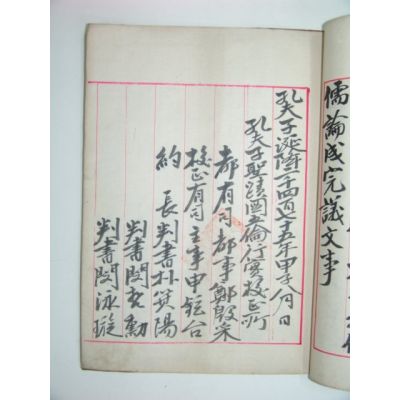 儒論成完議文事
孔夫子誕降二千四百七十五年甲子八月日
孔夫子聖蹟圖五倫行實校正所
都有司都事鄭殷采
校正有司主事申鉉台
約長判書朴箕陽
判書閔
判書閔泳璇